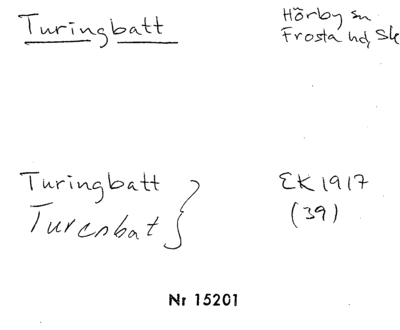 Turingbatt
Hörby sn
Frosta hd, Sk
Turingbatt
Turenbat
EK 1917
(39)
Nr 15201